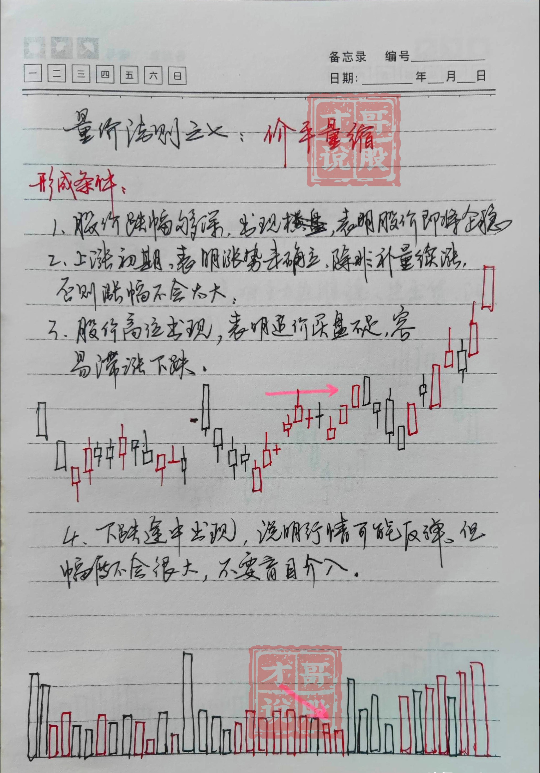 备忘录 编号
一 二 三 四 五 六 日
日期: 年 月 日
量价法则之七：价平量缩
才哥说股
形成条件：
1、股价跌幅够深，出现横盘，表明股价即将企稳
2、上涨初期，表明涨势未确立，除非补量续涨，
否则涨幅不会太大。
3、股价高位出现，表明追价买盘不足，容
易滞涨下跌。
4、下跌途中出现，说明行情可能反弹，但
幅度不会很大，不要盲目介入。
才哥说股